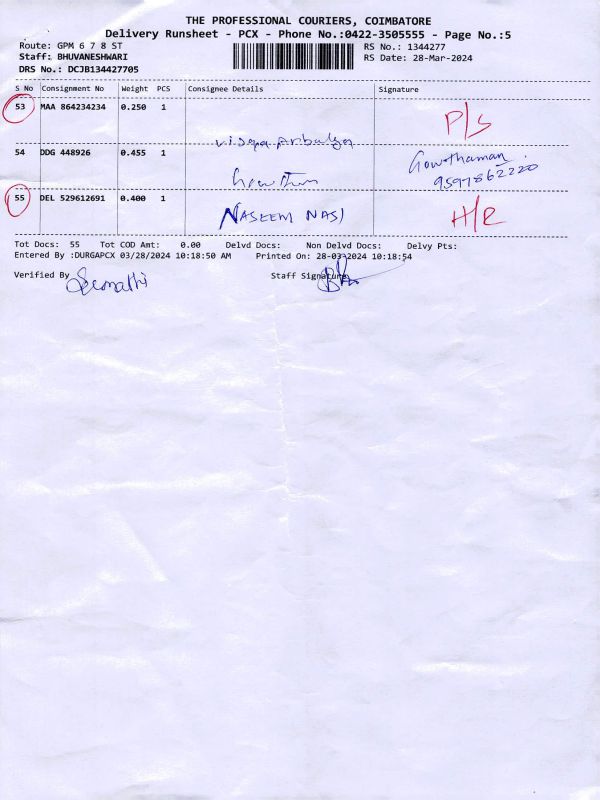 THE PROFESSIONAL COURIERS, COIMBATORE
Delivery Runsheet - PCX - Phone No.:0422-3505555 - Page No.:5
Route: GPM 6 7 8 ST
RS No.: 1344277
Staff: BHUVANESHWARI
RS Date: 28-Mar-2024
DRS No.: DCJB134427705
S No Consignment No Weight PCS Consignee Details Signature
53 MAA 864234234 0.250 1 P/S
54 DDG 448926 0.455 1 Gowthaman
9597862220
55 DEL 529612691 0.400 1 NASEEM NASI H/R
Tot Docs: 55 Tot COD Amt: 0.00 Delvd Docs: Non Delvd Docs: Delvy Pts:
Entered By :DURGAPCX 03/28/2024 10:18:50 AM Printed On: 28-03-2024 10:18:54
Verified By
Staff Signature